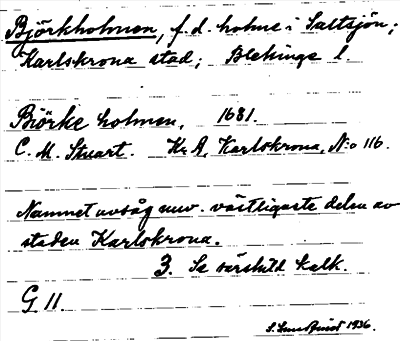 Björkholmen, f.d. holme i Saltsjön;
Karlskrona stad; Blekinge l.
Biörke holmen, 1681.
C. M. Stuart. Kr A, Karlskrona, N:o 116.
Namnet avsåg nuv. västligaste delen av
staden Karlskrona.
3. Se särskild kalk.
G 11.
1936.